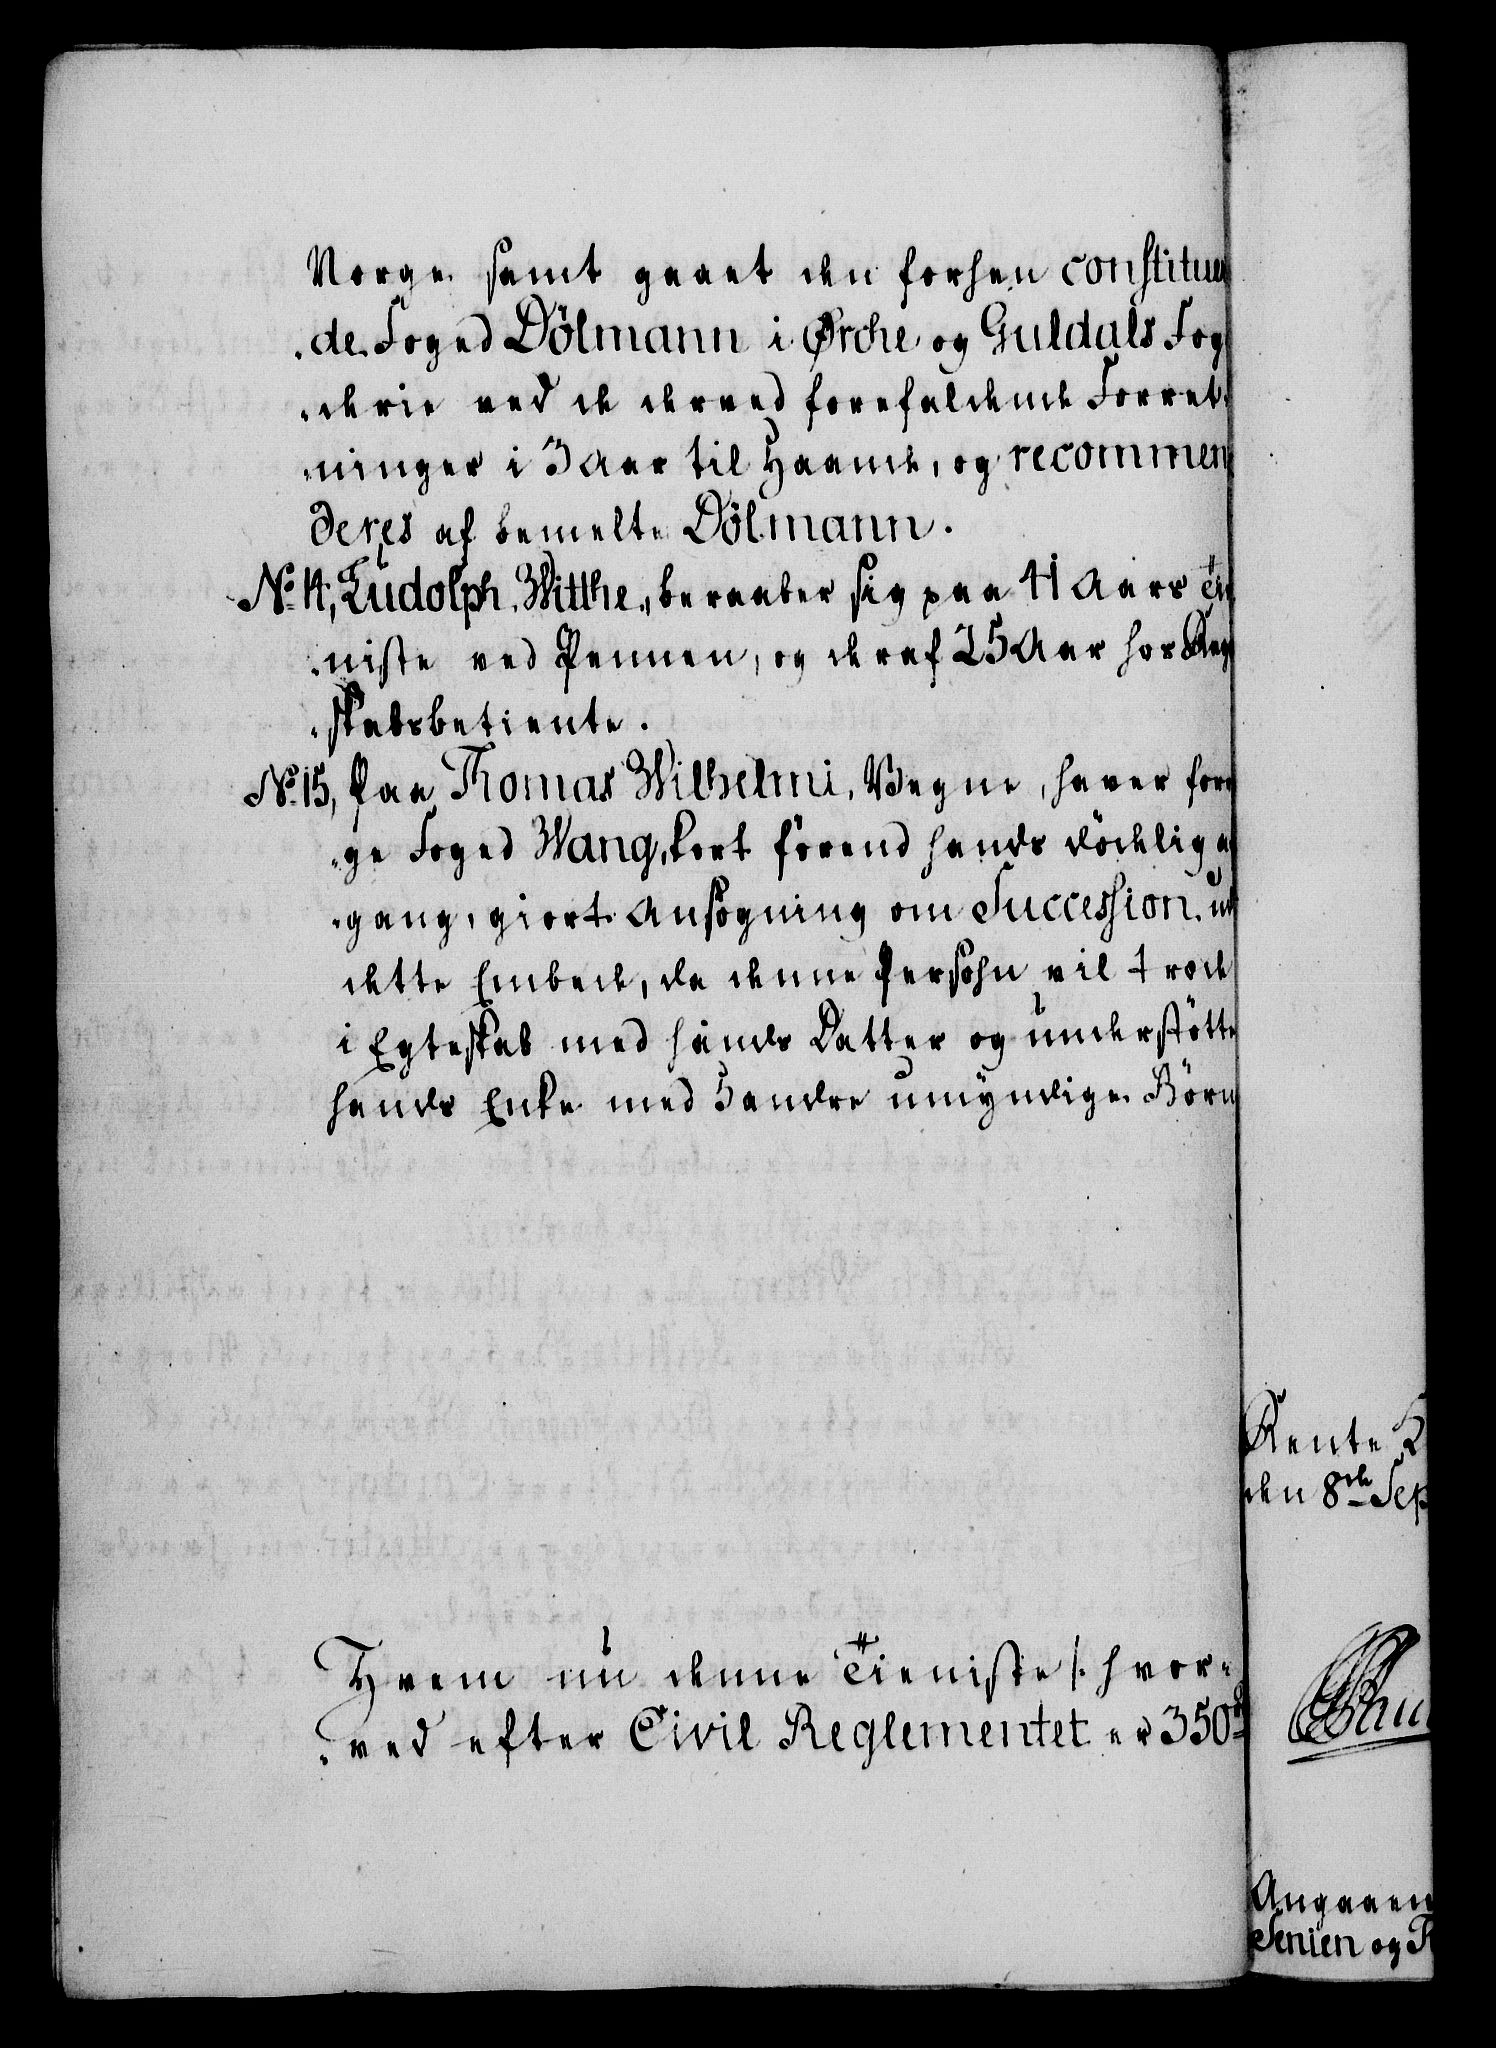 Norge samt gaaet den forhen constitue
de Foged Dölmann i Ørche og Guldals Fog
derie ved de derved forefaldende Forret
ninger i 3 Aar til Haande, og recommen
deres af bemelte Dölmann.
No. 14, Ludolph Witthe, beraaber sig paa 41 Aars Tie
niste ved Pennen, og deraf 25 Aar hos Reg
skabsbetiente.
No. 15, Paa Thomas Wilhelmi Vegne, haver for
ge Foged Wang, kort förend hands dödelig
gang, giort Ansøgning om Succession udi
dette Embede, da denne Persohn vil træde
i Egteskab med hands Datter og understötte
hands Enke med 5 andre umyndige Börn
Hvem nu denne Tieniste /: hvor
ved efter Civil Reglementet er 350 rd
Rente K
den 8de Sep
Angaaen
Senien og T